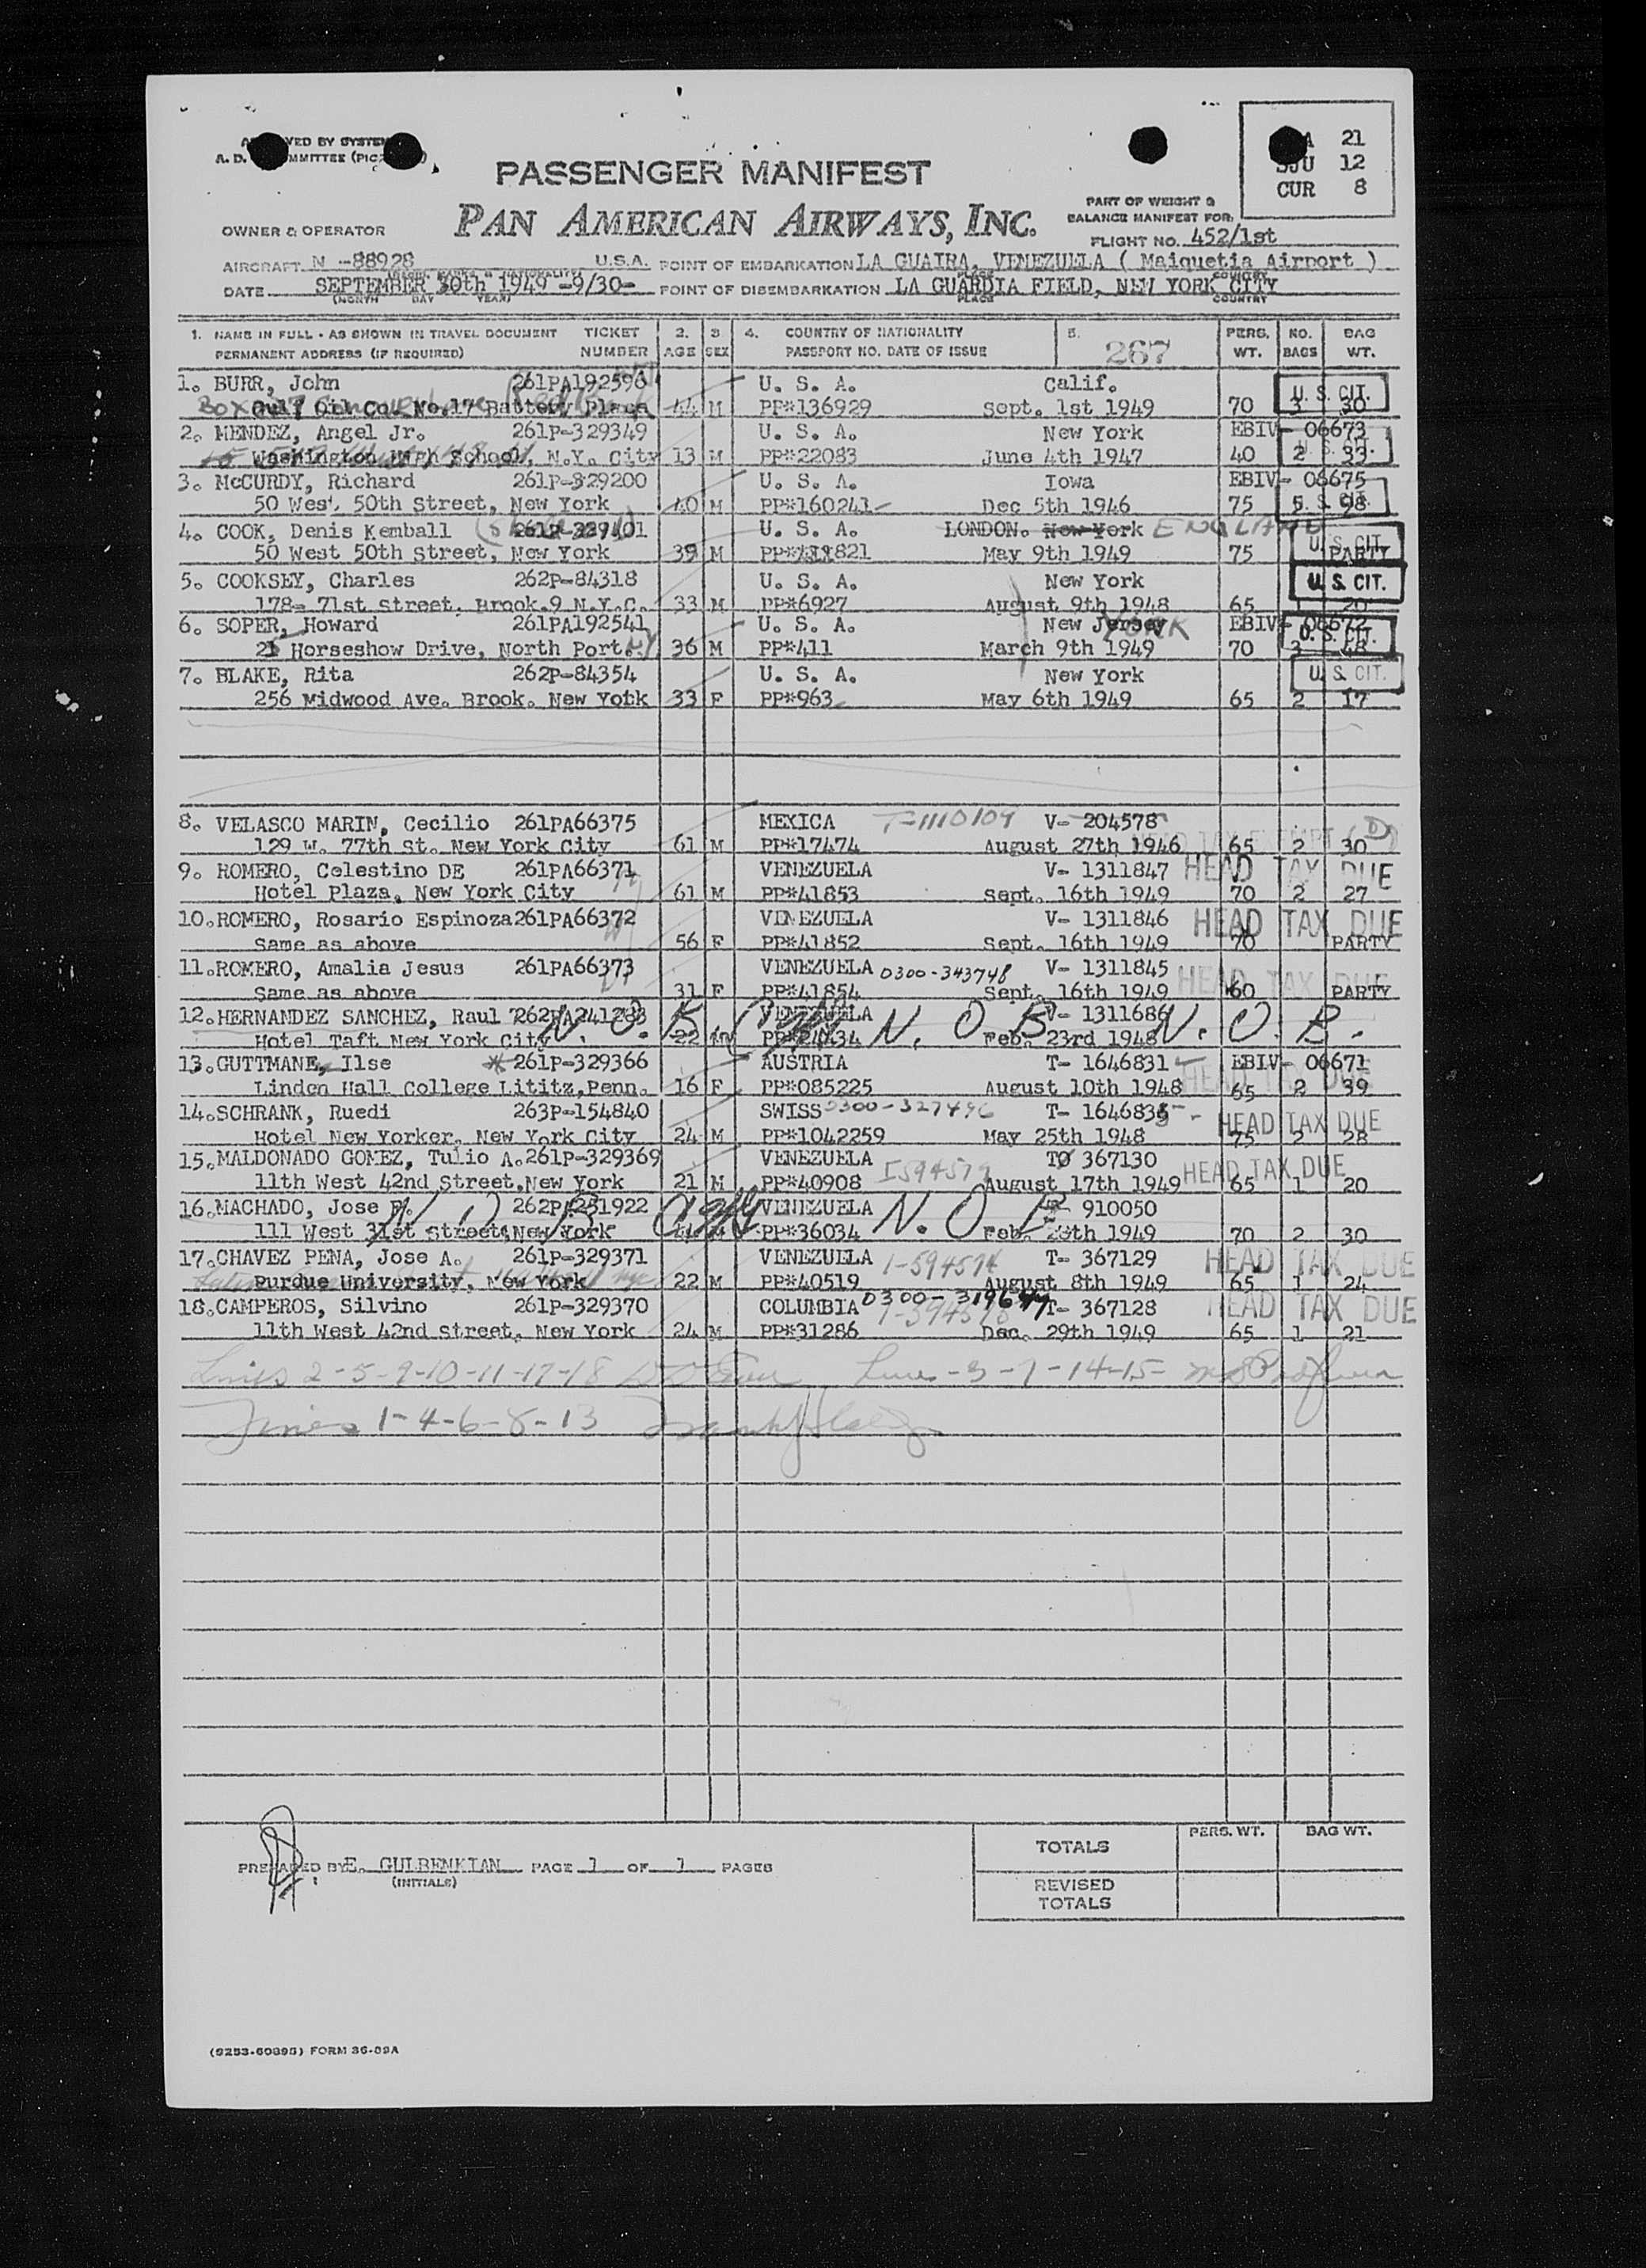 A 21
SJU 12
CUR 8
PASSENGER MANIFEST
PAN AMERICAN AIRWAYS, INC.
PART OF WEIGHT &
BALANCE MANIFEST FOR
FLIGHT NO. 452/1st
OWNER & OPERATOR
AIRCRAFT N -88928 U.S.A. POINT OF EMBARKATION LA GUAIRA, VENEZUELA ( Maiquetia Airport )
DATE SEPTEMBER 30th 1949 -9/30- POINT OF DISEMBARKATION LA GUARDIA FIELD, NEW YORK CITY
(MONTH DAY YEAR) PLACE COUNTRY
1. NAME IN FULL - AS SHOWN IN TRAVEL DOCUMENT TICKET 2. 3 4. COUNTRY OF NATIONALITY 5. PERS. NO. BAG
PERMANENT ADDRESS (IF REQUIRED) NUMBER AGE SEX PASSPORT NO. DATE OF ISSUE 267 WT. BAGS WT.
1. BURR, John 261PA192598 U. S. A. Calif. U. S. CIT.
Gulf Oil Co. No.17 Battery Place 44 M PP*136929 Sept. 1st 1949 70 3 30
2. MENDEZ, Angel Jr. 261P-329349 U. S. A. New York EBIV- 06673
Washington High School, N.Y. City 13 M PP*22083 June 4th 1947 40 2 33
3. McCURDY, Richard 261P-329200 U. S. A. Iowa EBIV- 06675
50 West 50th Street, New York 40 M PP*160241 Dec 5th 1946 75 5 98
4. COOK, Denis Kemball U. S. A. LONDON. New York ENGLAND
50 West 50th Street, New York 39 M May 9th 1949 75 PARTY U. S. CIT.
5. COOKSEY, Charles 262P-84318 U. S. A. New York U. S. CIT.
178- 71st Street, Brook.9 N.Y.C. 33 M PP*6927 August 9th 1948 65 1 20
6. SOPER, Howard 261PA192541 U. S. A. New Jersey YORK EBIV- 06672
Horseshow Drive, North Port. NY 36 M PP*411 March 9th 1949 70 3 48 U. S. CIT.
7. BLAKE, Rita 262P-84354 U. S. A. New York U. S. CIT.
256 Midwood Ave. Brook. New York 33 F PP*963 May 6th 1949 65 2 17
8. VELASCO MARIN, Cecilio 261PA66375 MEXICA T-1110109 V- 204578
129 W. 77th St. New York City 61 M PP*17474 August 27th 1946 65 2 30
9. ROMERO, Celestino DE 261PA66371 VENEZUELA V- 1311847 HEAD TAX DUE
Hotel Plaza, New York City 61 M PP*41853 Sept. 16th 1949 70 2 27
10. ROMERO, Rosario Espinoza 261PA66372 VENEZUELA V- 1311846 HEAD TAX DUE
Same as above 56 F PP*41852 Sept. 16th 1949 70 PARTY
11. ROMERO, Amalia Jesus 261PA66373 VENEZUELA 0300-343748 V- 1311845 HEAD TAX DUE
Same as above 31 F PP*41854 Sept. 16th 1949 60 PARTY
12. HERNANDEZ SANCHEZ, Raul 262PA241283 VENEZUELA V- 1311686 N. O. B. N. O. B. N. O. B.
Hotel Taft New York City 22 Feb. 23rd 1948
13. GUTTMANE, Ilse * 261P-329366 AUSTRIA T- 1646831 EBIV- 06671
Linden Hall College Lititz, Penn. 16 F PP*085225 August 10th 1948 65 2 39
14. SCHRANK, Ruedi 263P-154840 SWISS 0300-327496 HEAD TAX DUE
Hotel New Yorker, New York City 24 M PP*1042259 May 25th 1948 75 2 28
15. MALDONADO GOMEZ, Tulio A. 261P-329369 VENEZUELA T 367130 HEAD TAX DUE
11th West 42nd Street, New York 21 M PP*40908 August 17th 1949 65 1 20
16. MACHADO, Jose VENEZUELA 910050 N. O. B. N. O. B.
111 West 31st Street, New York PP*36034 Feb. 1949 70 2 30
17. CHAVEZ PENA, Jose A. 261P-329371 VENEZUELA 1-594574 T- 367129 HEAD TAX DUE
Purdue University, New York 22 M PP*40519 August 8th 1949 65 1 24
18. CAMPEROS, Silvino 261P-329370 COLUMBIA T- 367128 HEAD TAX DUE
11th West 42nd Street, New York 24 M PP*31286 Dec. 29th 1949 65 1 21
Lines 2-5-9-10-11-17-18 Lines -3-7-14-15-
Lines 1-4-6-8-13
TOTALS PERS. WT. BAG WT.
PREPARED BY E. GULBENKIAN PAGE 1 OF 1 PAGES
(INITIALS)
REVISED
TOTALS
(9253-60895) FORM 36-89A